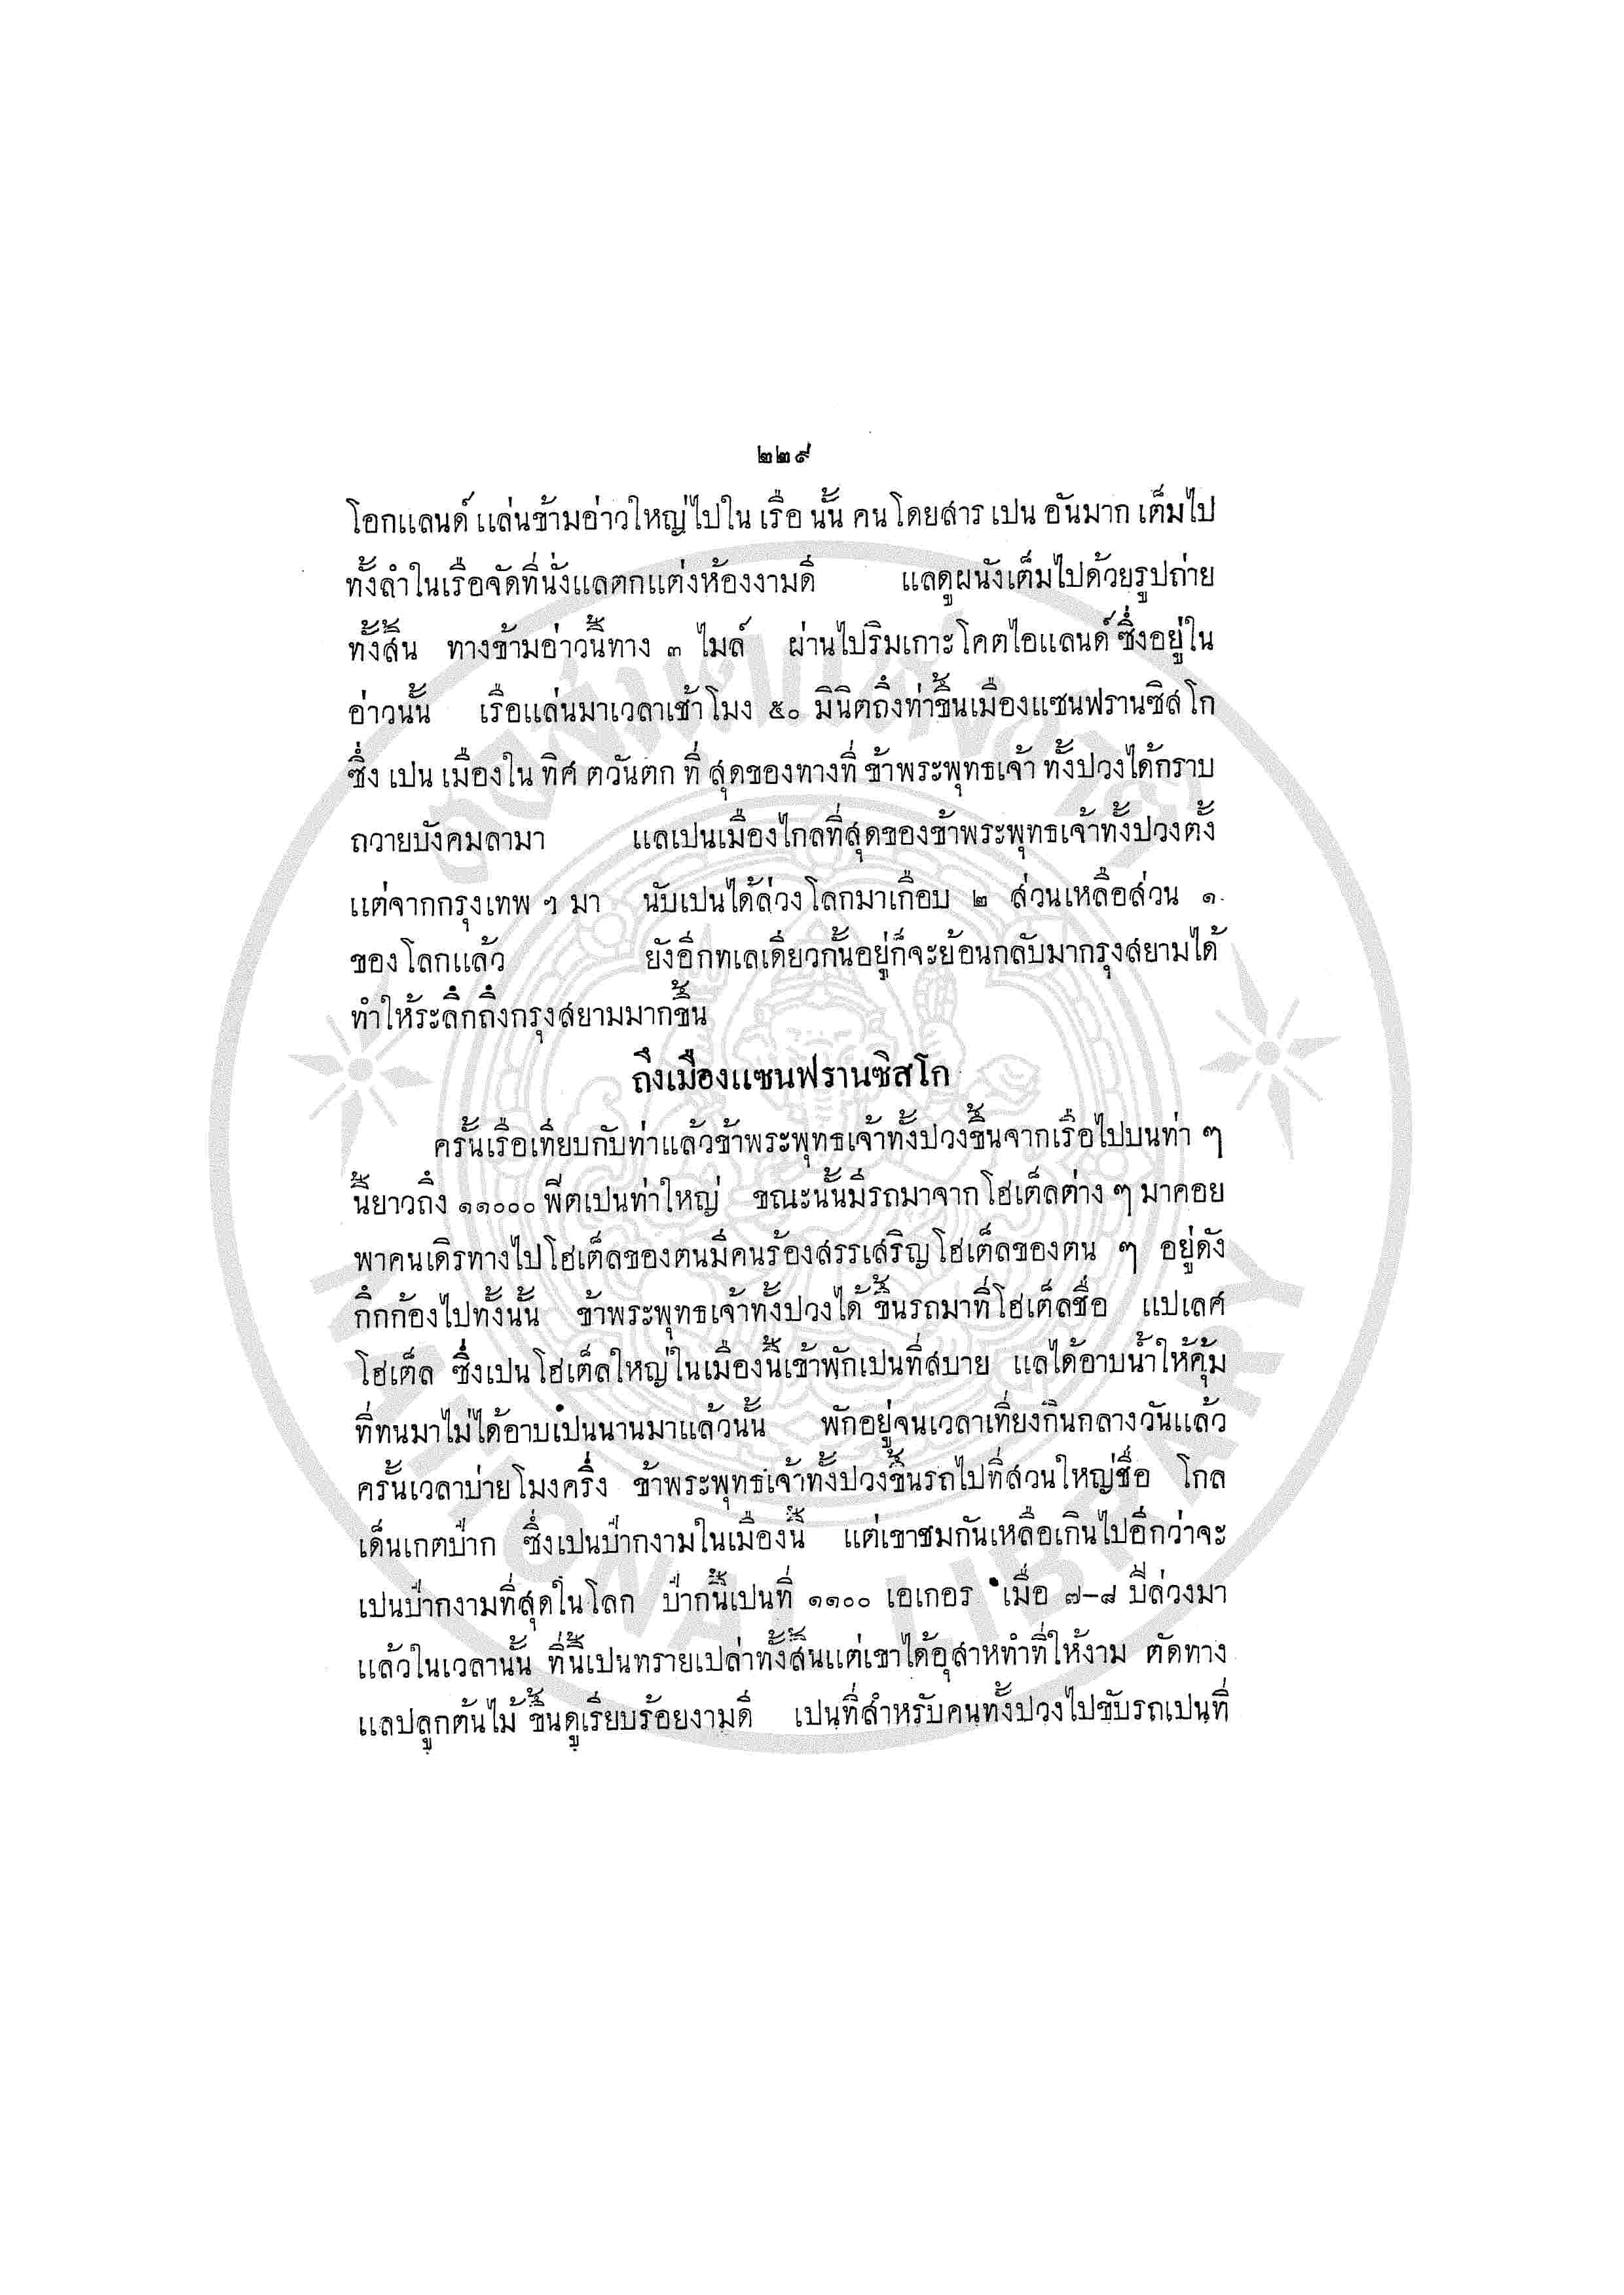 ๒๒๙
โอกแลนด์ แล่นข้ามอ่าวใหญ่ไปใน เรือ นั้น คน โดยสาร เปน อันมาก เต็มไป
ทั้งลำในเรือจัดที่นั่งแลตกแต่งห้องงามดี แลดูผนังเต็มไปด้วยรูปถ่าย
ทั้งสิ้น ทางข้ามอ่าวนี้ทาง ๓ ไมล์ ผ่านไปริมเกาะโคตไอแลนด์ ซึ่งอยู่ใน
อ่าวนั้น เรือแล่นมาเวลาเช้าโมง ๕๐ มินิตถึงท่าขึ้นเมืองแซนฟรานซิสโก
ซึ่ง เปน เมืองใน ทิศ ตวันตก ที่ สุดของทางที่ ข้าพระพุทธเจ้า ทั้งปวงได้กราบ
ถวายบังคมลามา แลเปนเมืองไกลที่สุดของข้าพระพุทธเจ้าทั้งปวงตั้ง
แต่จากกรุงเทพ ฯ มา นับเปนได้ล่วงโลกมาเกือบ ๒ ส่วนเหลือส่วน ๑
ของโลกแล้ว ยังอีกทเลเดียวกั้นอยู่ก็จะย้อนกลับมากรุงสยามได้
ทำให้ระลึกถึงกรุงสยามมากขึ้น
ถึงเมืองแซนฟรานซิสโก
ครั้นเรือเทียบกับท่าแล้วข้าพระพุทธเจ้าทั้งปวงขึ้นจากเรือไปบนท่า ๆ
นี้ยาวถึง ๑๑๐๐๐ ฟีตเปนท่าใหญ่ ขณะนั้นมีรถมาจากโฮเต็ลต่าง ๆ มาคอย
พาคนเดิรทางไปโฮเต็ลของตนมีคนร้องสรรเสริญโฮเต็ลของตน ๆ อยู่ดัง
กึกก้องไปทั้งนั้น ข้าพระพุทธเจ้าทั้งปวงได้ ขึ้นรถมาที่โฮเต็ลชื่อ แปเลศ
โฮเต็ล ซึ่งเปนโฮเต็ลใหญ่ในเมืองนี้เข้าพักเปนที่สบาย แลได้อาบน้ำให้คุ้ม
ที่ทนมาไม่ได้อาบเปนนานมาแล้วนั้น พักอยู่จนเวลาเที่ยงกินกลางวันแล้ว
ครั้นเวลาบ่ายโมงครึ่ง ข้าพระพุทธเจ้าทั้งปวงขึ้นรถไปที่สวนใหญ่ชื่อ โกล
เด็นเกตป๊าก ซึ่งเปนป๊ากงามในเมืองนี้ แต่เขาชมกันเหลือเกินไปอีกว่าจะ
เปนป๊ากงามที่สุดในโลก ป๊ากนี้เปนที่ ๑๑๐๐ เอเกอร เมื่อ ๗-๘ ปีล่วงมา
แล้วในเวลานั้น ที่นี้เปนทรายเปล่าทั้งสิ้นแต่เขาได้อุสาหทำที่ให้งาม ตัดทาง
แลปลูกต้นไม้ ขึ้นดูเรียบร้อยงามดี เปนที่สำหรับคนทั้งปวงไปขับรถเปนที่